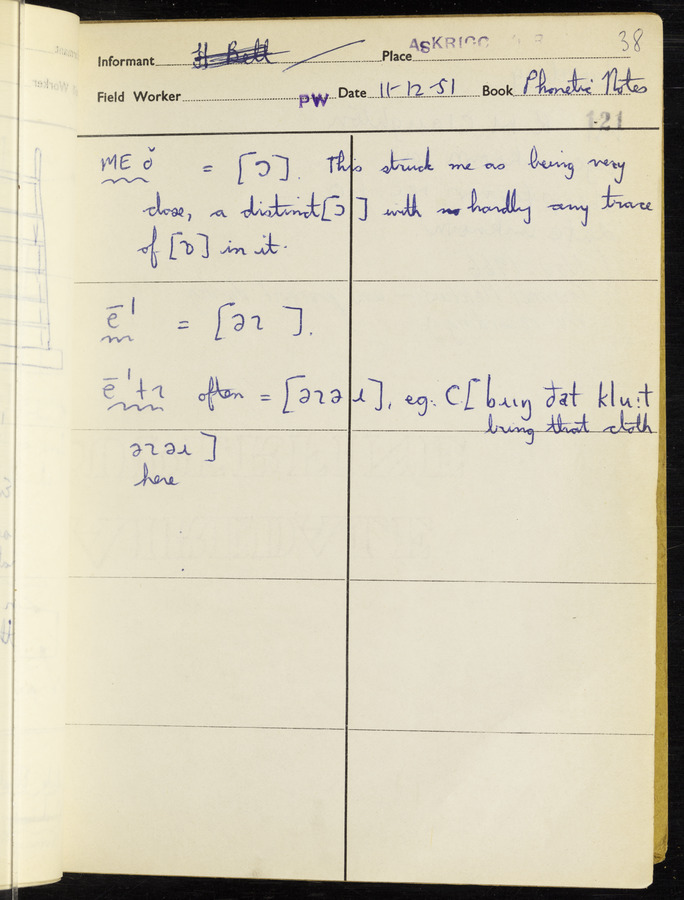 38
Informant Place ASKRIGG
Field Worker PW Date 11-12-51 Book Phonetic Notes
121
ME ŏ = [ɔ]. This struck me as being very
close, a distinct [ɔ] with hardly any trace
of [ɒ] in it.
ē¹ =
ē¹+r often = eg. C[
bring that cloth
here